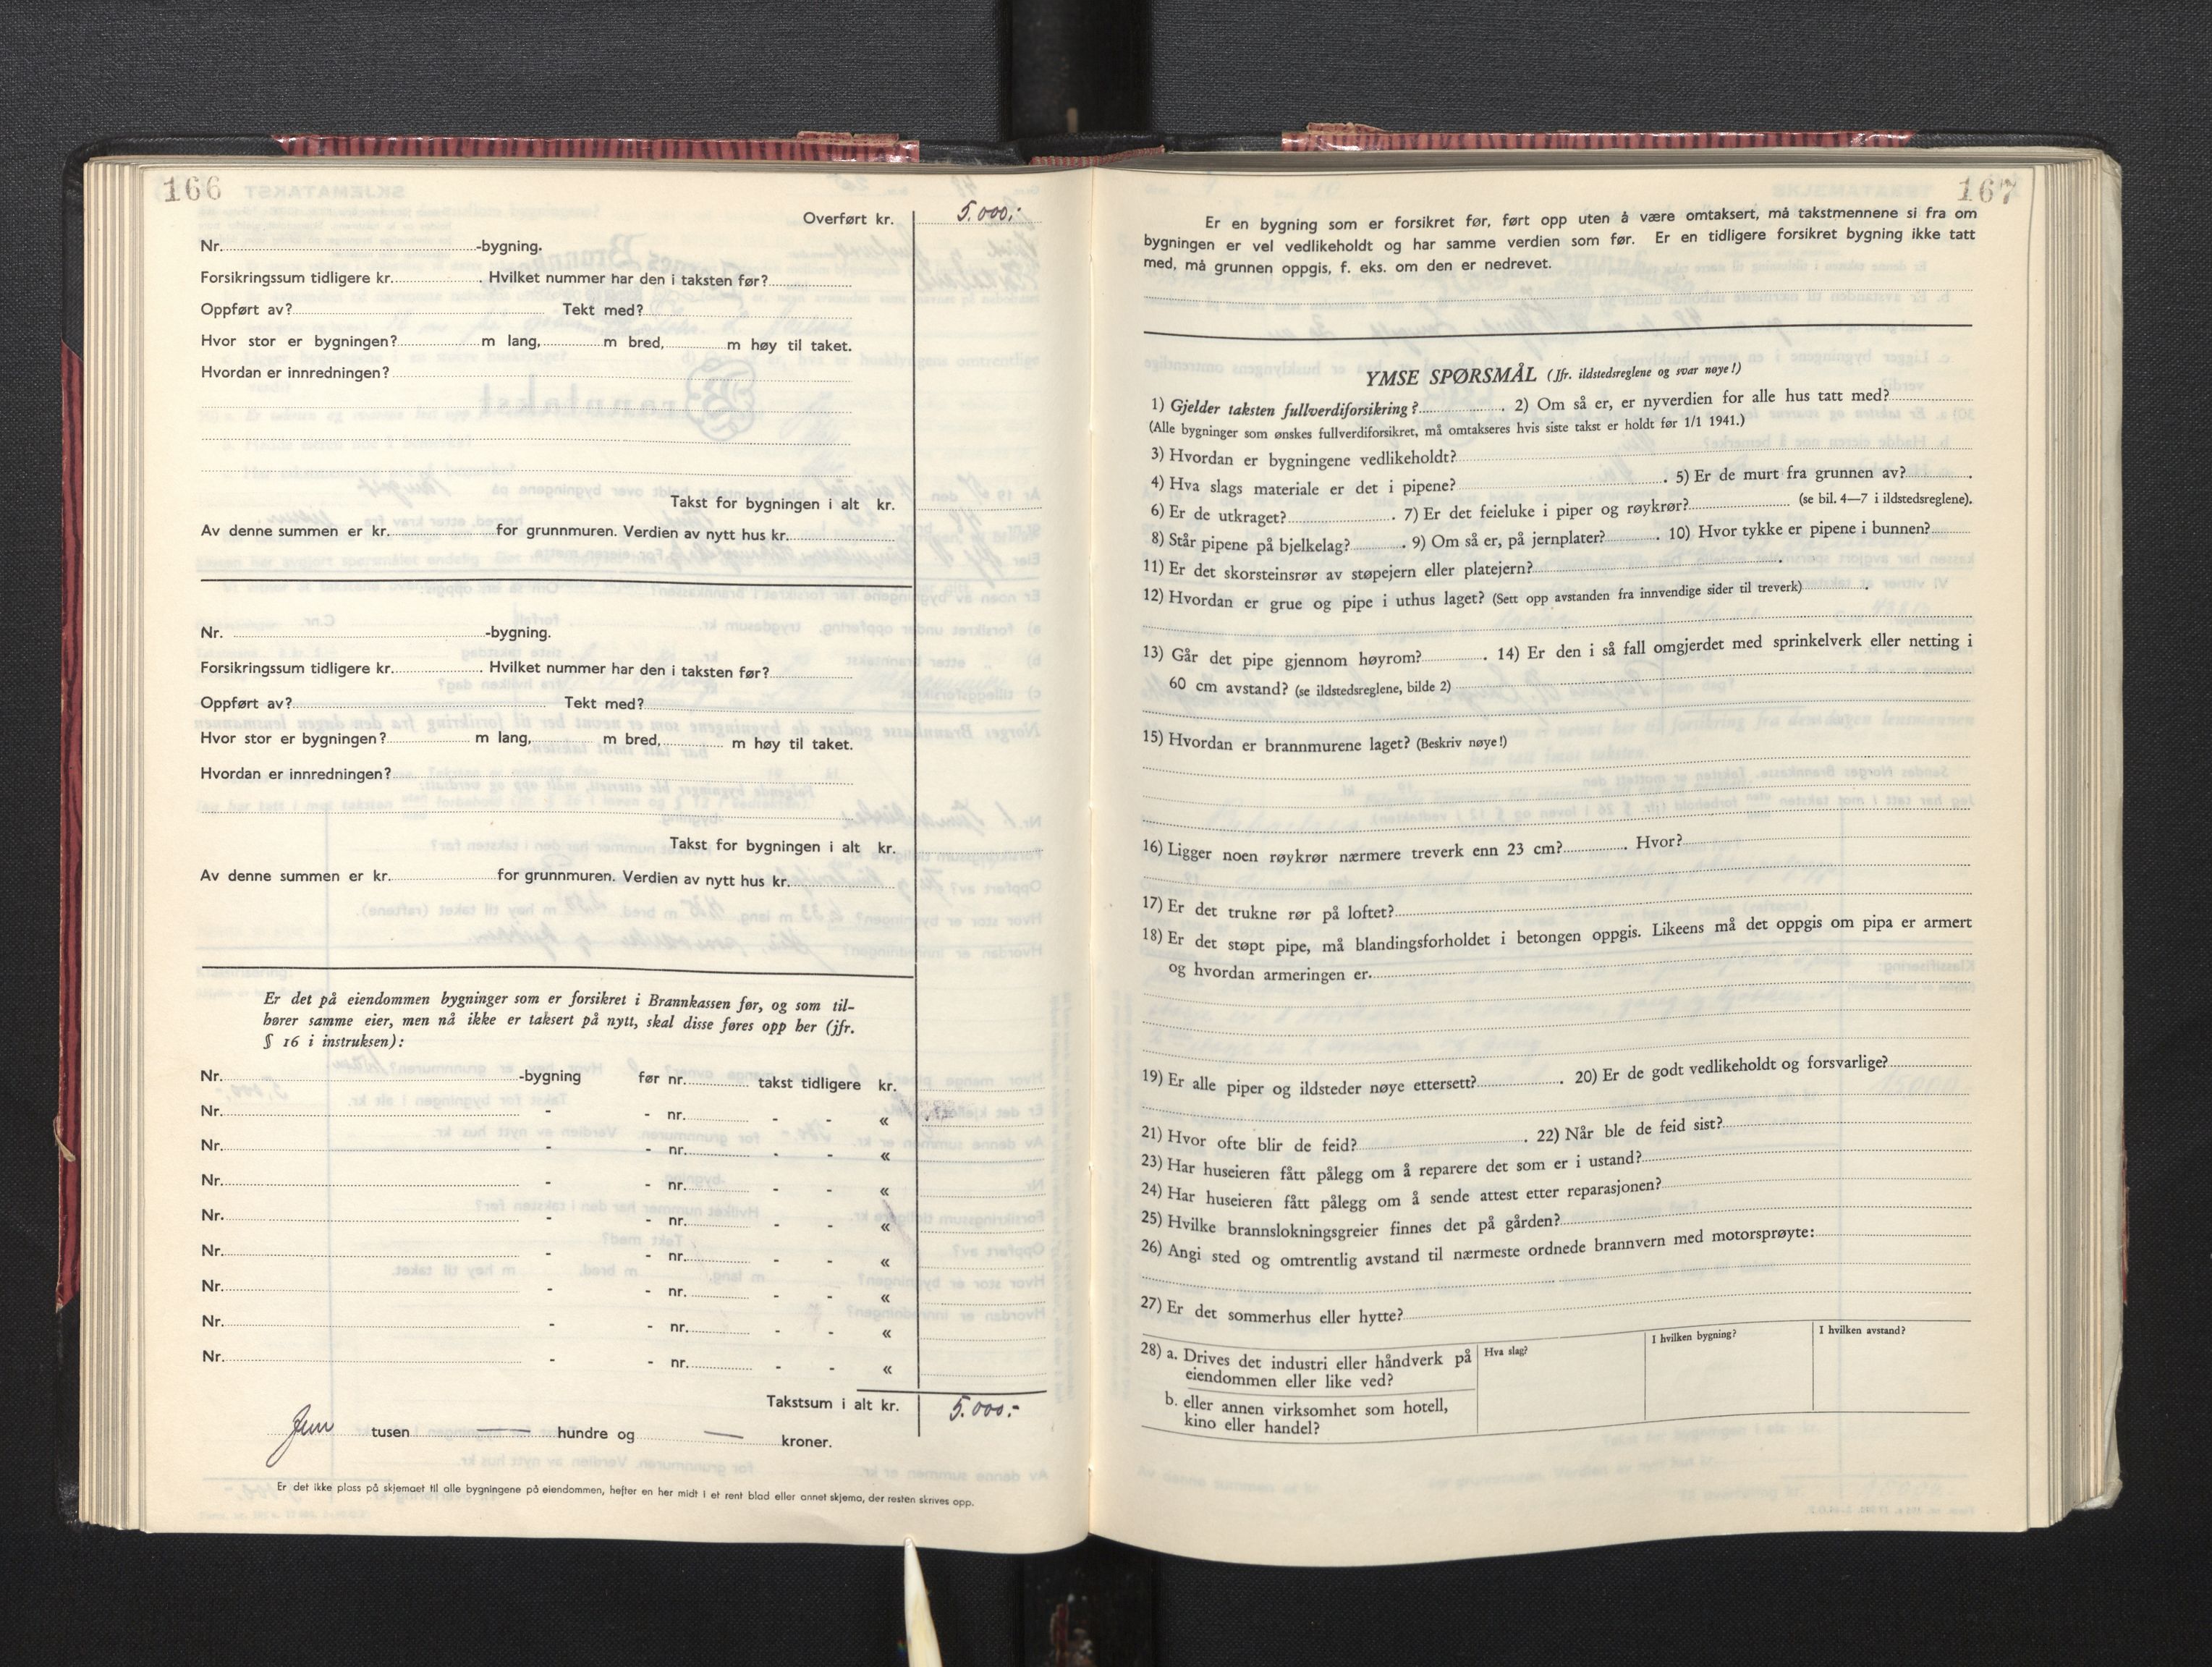 166
Overført kr. 5.000,-
Nr. -bygning.
Forsikringssum tidligere kr. . Hvilket nummer har den i taksten før?
Oppført av? Tekt med?
Hvor stor er bygningen? m lang, m bred, m høy til taket.
Hvordan er innredningen?
Takst for bygningen i alt kr.
Av denne summen er kr. for grunnmuren. Verdien av nytt hus kr.
Nr. -bygning.
Forsikringssum tidligere kr. . Hvilket nummer har den i taksten før?
Oppført av? Tekt med?
Hvor stor er bygningen? m lang, m bred, m høy til taket.
Hvordan er innredningen?
Takst for bygningen i alt kr.
Av denne summen er kr. for grunnmuren. Verdien av nytt hus kr.
Er det på eiendommen bygninger som er forsikret i Brannkassen før, og som til-
hører samme eier, men nå ikke er taksert på nytt, skal disse føres opp her (jfr.
§ 16 i instruksen):
Nr. -bygning før nr. takst tidligere kr.
Nr. - - nr. - - «
Nr. - - nr. - - «
Nr. - - nr. - - «
Nr. - - nr. - - «
Nr. - - nr. - - «
Nr. - - nr. - - «
Nr. - - nr. - - «
Nr. - - nr. - - «
Takstsum i alt kr. 5.000,-
Fem tusen — hundre og — kroner.
Er det ikke plass på skjemaet til alle bygningene på eiendommen, hefter en her midt i et rent blad eller annet skjema, der resten skrives opp.
167
Er en bygning som er forsikret før, ført opp uten å være omtaksert, må takstmennene si fra om
bygningen er vel vedlikeholdt og har samme verdien som før. Er en tidligere forsikret bygning ikke tatt
med, må grunnen oppgis, f. eks. om den er nedrevet.
YMSE SPØRSMÅL (Jfr. ildstedsreglene og svar nøye!)
1) Gjelder taksten fullverdiforsikring? . 2) Om så er, er nyverdien for alle hus tatt med?
(Alle bygninger som ønskes fullverdiforsikret, må omtakseres hvis siste takst er holdt før 1/1 1941.)
3) Hvordan er bygningene vedlikeholdt?
4) Hva slags materiale er det i pipene? . 5) Er de murt fra grunnen av? .
6) Er de utkraget? . 7) Er det feieluke i piper og røykrør? (se bil. 4—7 i ildstedsreglene).
8) Står pipene på bjelkelag? . 9) Om så er, på jernplater? . 10) Hvor tykke er pipene i bunnen?
11) Er det skorsteinsrør av støpejern eller platejern? .
12) Hvordan er grue og pipe i uthus laget? (Sett opp avstanden fra innvendige sider til treverk) .
13) Går det pipe gjennom høyrom? . 14) Er den i så fall omgjerdet med sprinkelverk eller netting i
60 cm avstand? (se ildstedsreglene, bilde 2)
15) Hvordan er brannmurene laget? (Beskriv nøye!)
16) Ligger noen røykrør nærmere treverk enn 23 cm? . Hvor?
17) Er det trukne rør på loftet?
18) Er det støpt pipe, må blandingsforholdet i betongen oppgis. Likeens må det oppgis om pipa er armert
og hvordan armeringen er.
19) Er alle piper og ildsteder nøye ettersett? . 20) Er de godt vedlikeholdt og forsvarlige?
21) Hvor ofte blir de feid? . 22) Når ble de feid sist?
23) Har huseieren fått pålegg om å reparere det som er i ustand?
24) Har huseieren fått pålegg om å sende attest etter reparasjonen?
25) Hvilke brannslokningsgreier finnes det på gården?
26) Angi sted og omtrentlig avstand til nærmeste ordnede brannvern med motorsprøyte:
27) Er det sommerhus eller hytte?
28) a. Drives det industri eller håndverk på Hva slag? I hvilken bygning? I hvilken avstand?
eiendommen eller like ved?
b. eller annen virksomhet som hotell,
kino eller handel?